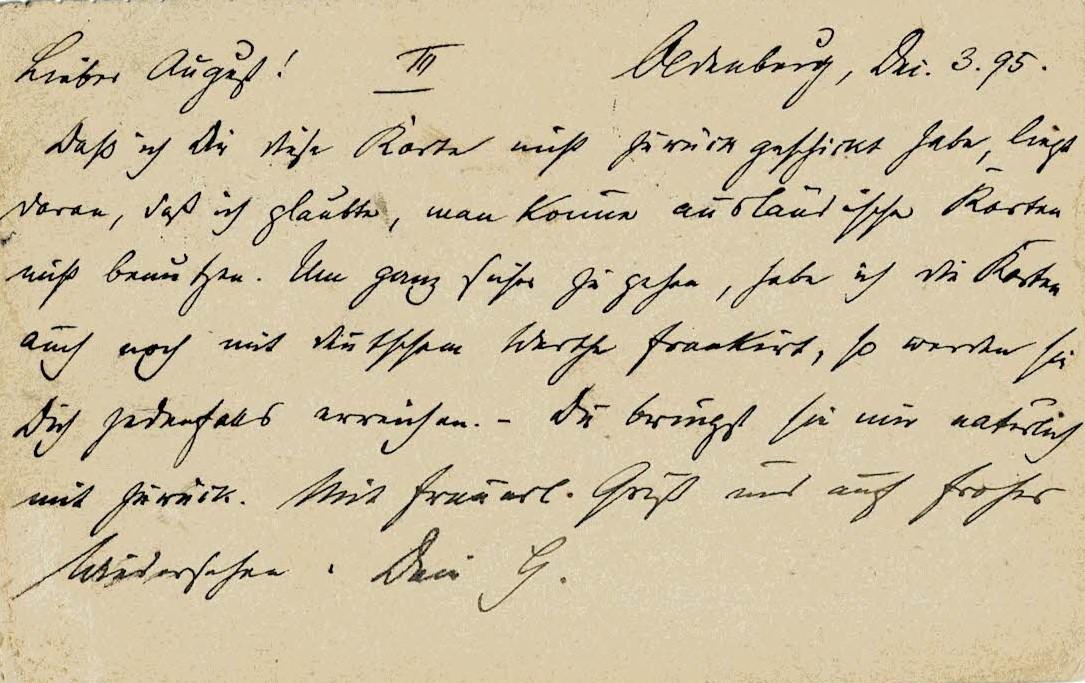 Lieber August! III Oldenburg, Dec. 3. 95.
Daß ich Dir diese Karte nicht zurück geschickt habe, liegt
daran, daß ich glaubte, man könne ausländische Karten
nicht benutzen. Um ganz sicher zu gehen, habe ich die Karten
auch noch mit deutschem Werthe frankirt, so werden sie
Dich jedenfalls erreichen. – Du bringst sie mir natürlich
mit zurück. Mit freundl. Gruß und auf frohes
Wiedersehen. Dein G.